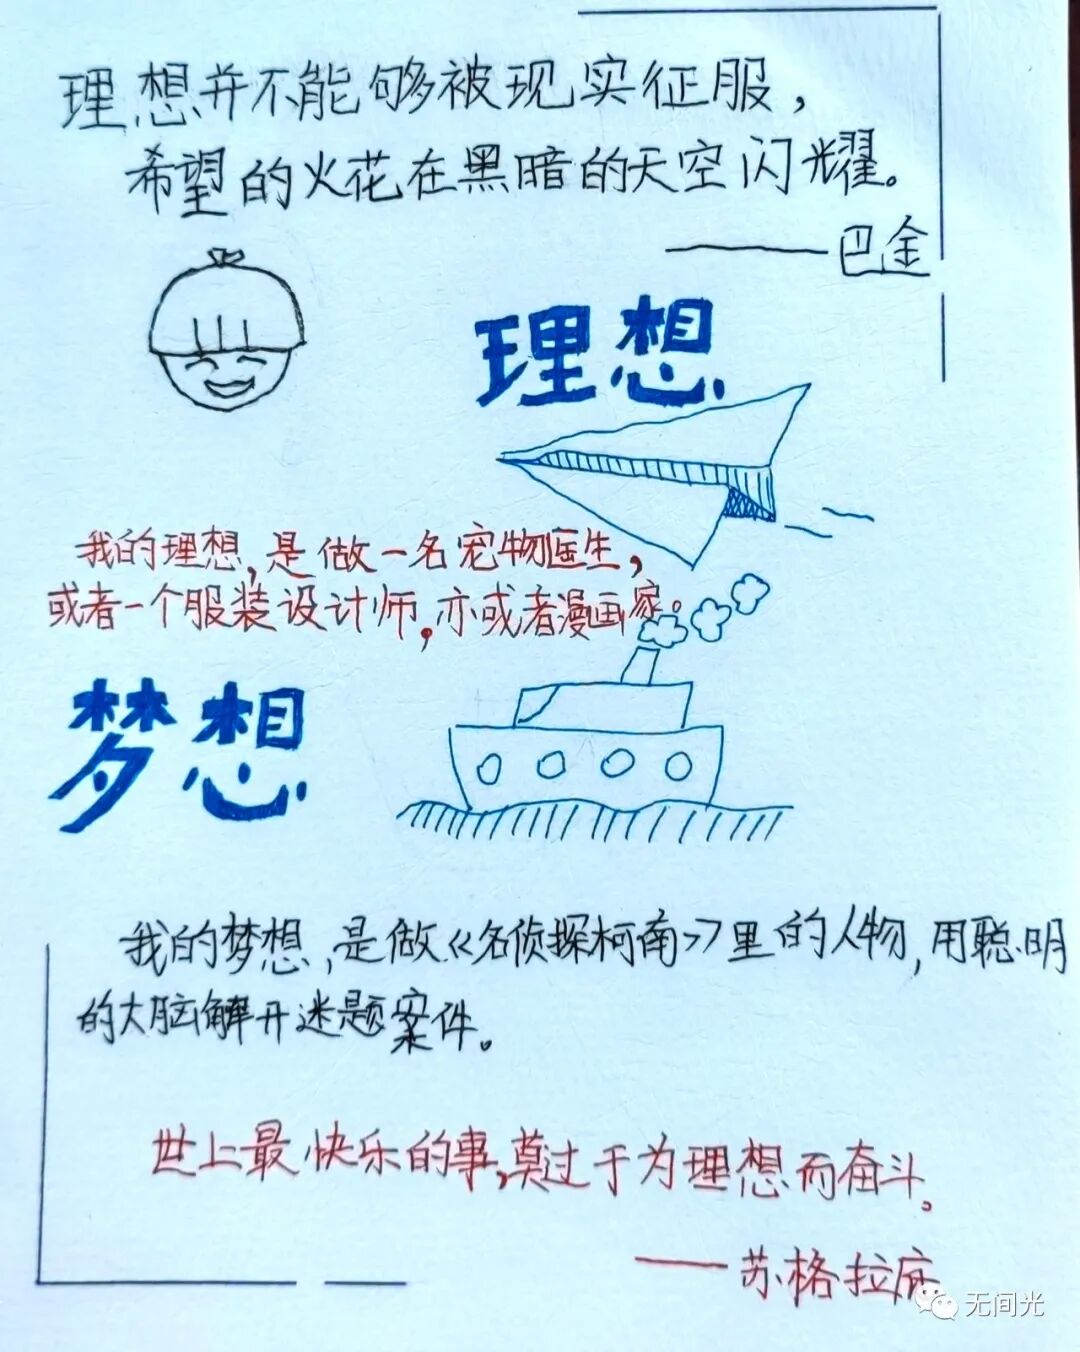 理想并不能够被现实征服，
希望的火花在黑暗的天空闪耀。
——巴金
理想
我的理想，是做一名宠物医生，
或者一个服装设计师，亦或者漫画家。
梦想
我的梦想，是做《名侦探柯南》里的人物，用聪明
的大脑解开迷题案件。
世上最快乐的事，莫过于为理想而奋斗。
——苏格拉底
无间光